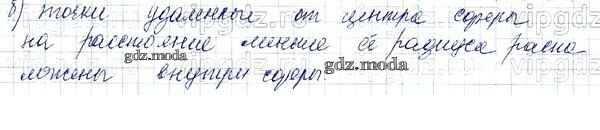 б) точки удаленные от центра сферы
на расстояние меньше её радиуса распо
ложены внутри сферы.
gdz.moda
gdz.moda
gdz.moda
vipgdz
vipgdz